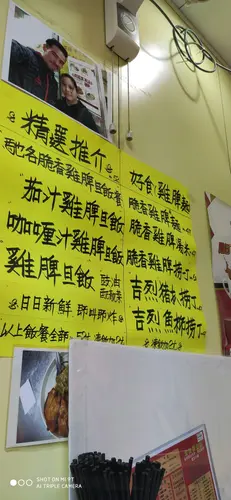 精選推介
馳名脆香雞脾旦飯餐
茄汁雞脾旦飯
咖喱汁雞脾旦飯
雞脾旦飯
豉油
日日新鮮 即叫即炸
以上飯餐全部
好食雞脾麵
脆香雞脾麵
脆香雞脾
脆香雞脾撈丁
吉烈豬扒撈丁
吉烈魚柳撈丁
SHOT ON MI 9T
AI TRIPLE CAMERA